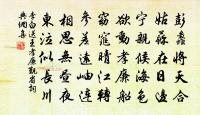 彭蠡將天合
姑蘇在日邊
寧親候海色
欲動孝廉船
窈窕晴江轉
參差遠岫連
相思無晝夜
東泣似長川
李白送王孝廉覲省詞
典網集